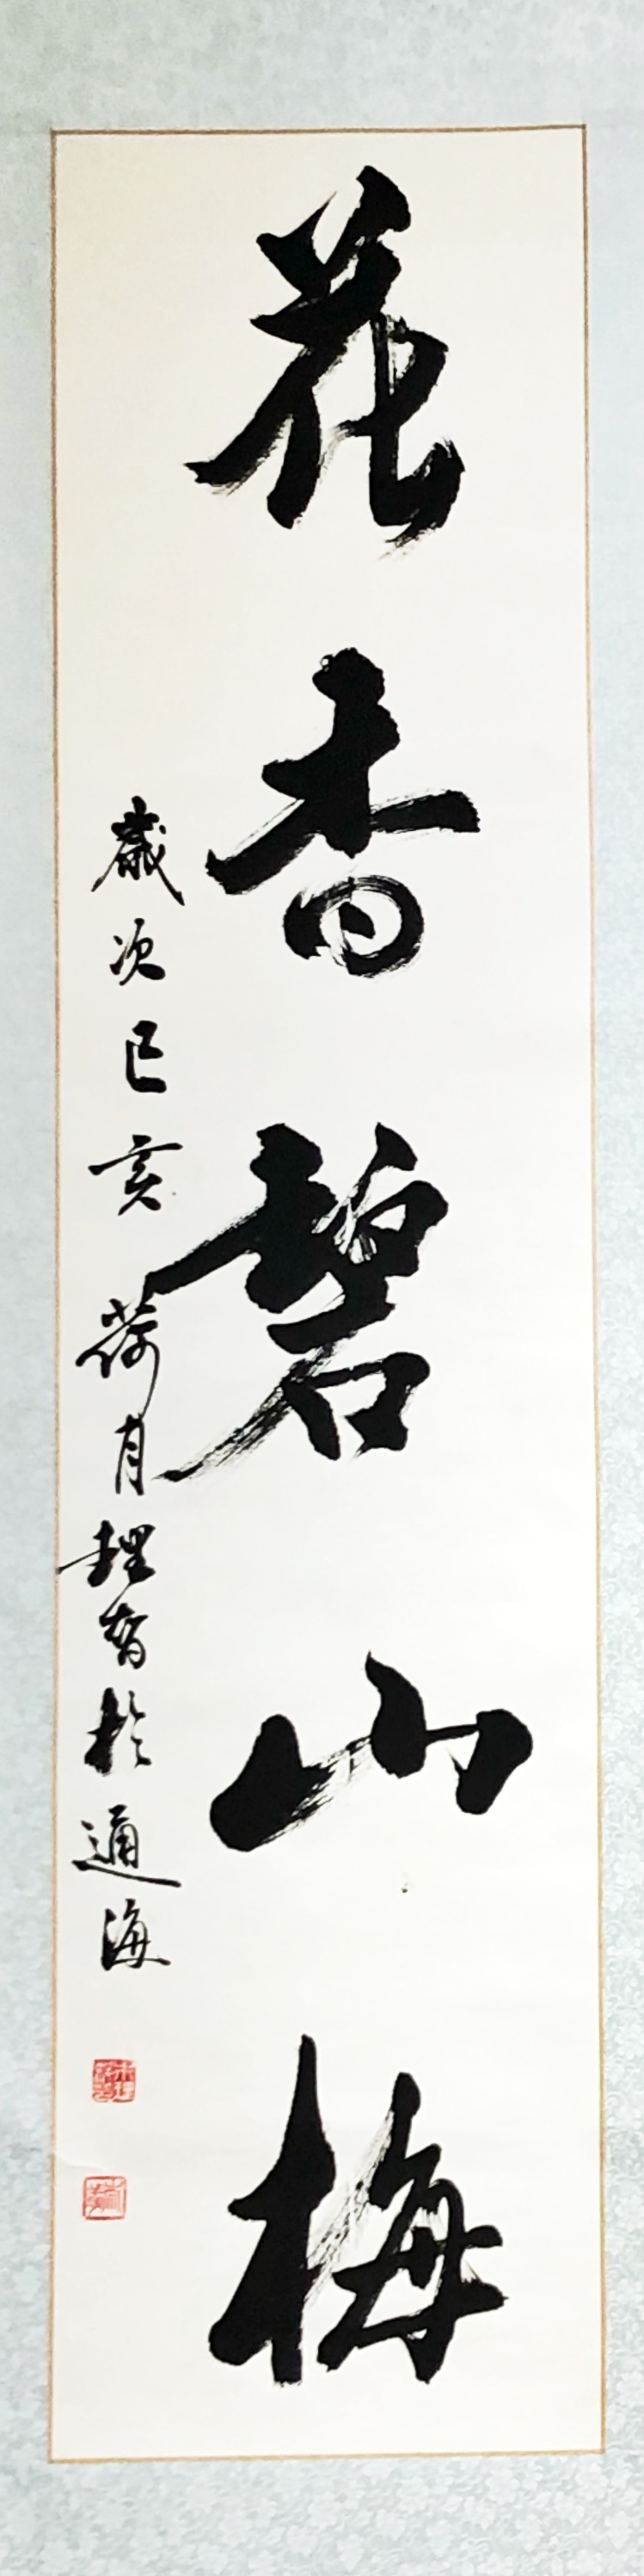 花香碧山梅
歲次己亥荷月理智於通海